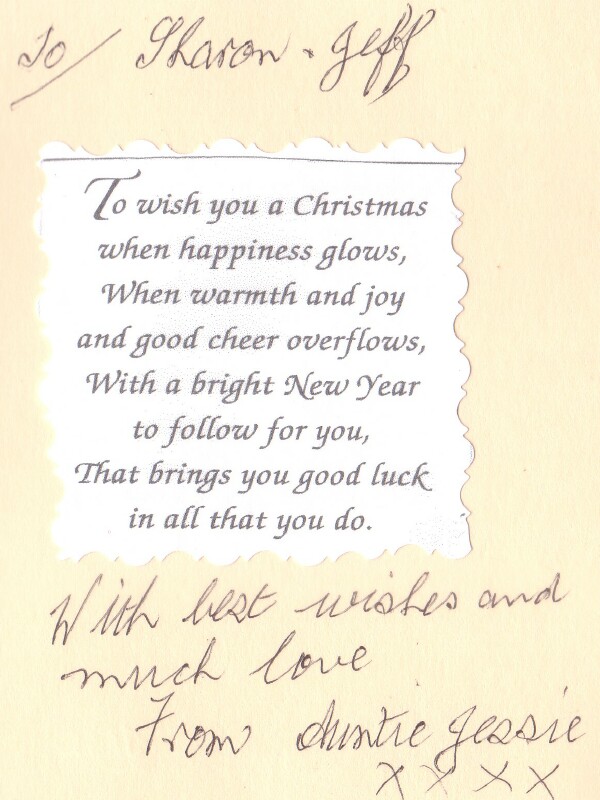 To / Sharon . Jeff
To wish you a Christmas
when happiness glows,
When warmth and joy
and good cheer overflows,
With a bright New Year
to follow for you,
That brings you good luck
in all that you do.
With best wishes and
much love
From Auntie Jessie
X X X X